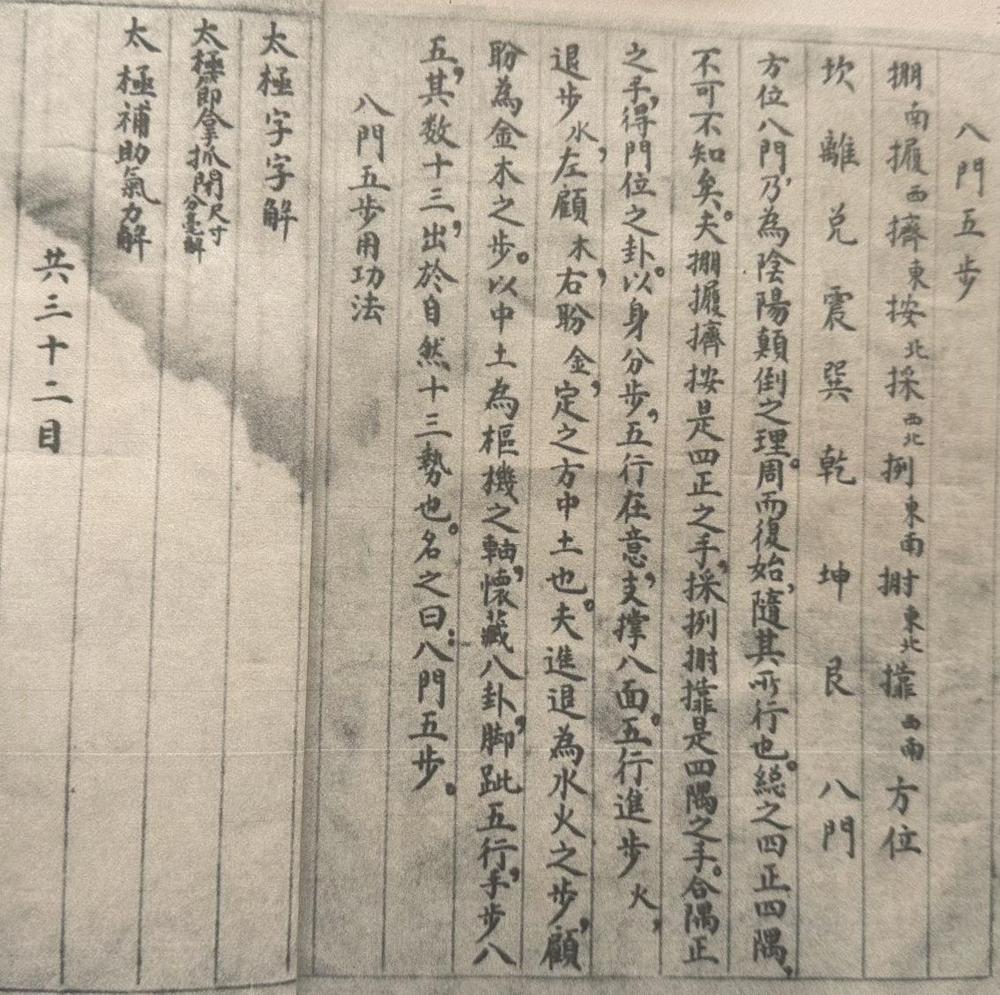 八門五步
掤南 㩯西 擠東 按北 採西北 挒東南 𢬍東北 靠西南 方位
坎 離 兌 震 巽 乾 坤 艮 八門
方位八門乃為陰陽顛倒之理。周而復始，隨其所行也。總之四正四隅，
不可不知矣。夫掤㩯擠按是四正之手，採挒𢬍靠是四隅之手。合隅正
之手，得門位之卦。以身分步，五行在意，支撐八面。五行進步火，
退步水，左顧木，右盼金，定之方中土也。夫進退為水火之步，顧
盼為金木之步。以中土為樞機之軸，懷藏八卦，脚跐五行，手步八
五，其数十三，出於自然十三勢也。名之曰：八門五步。
八門五步用功法
太極字字解
太極節拿抓閉尺寸分毫解
太極補助氣力解
共三十二目